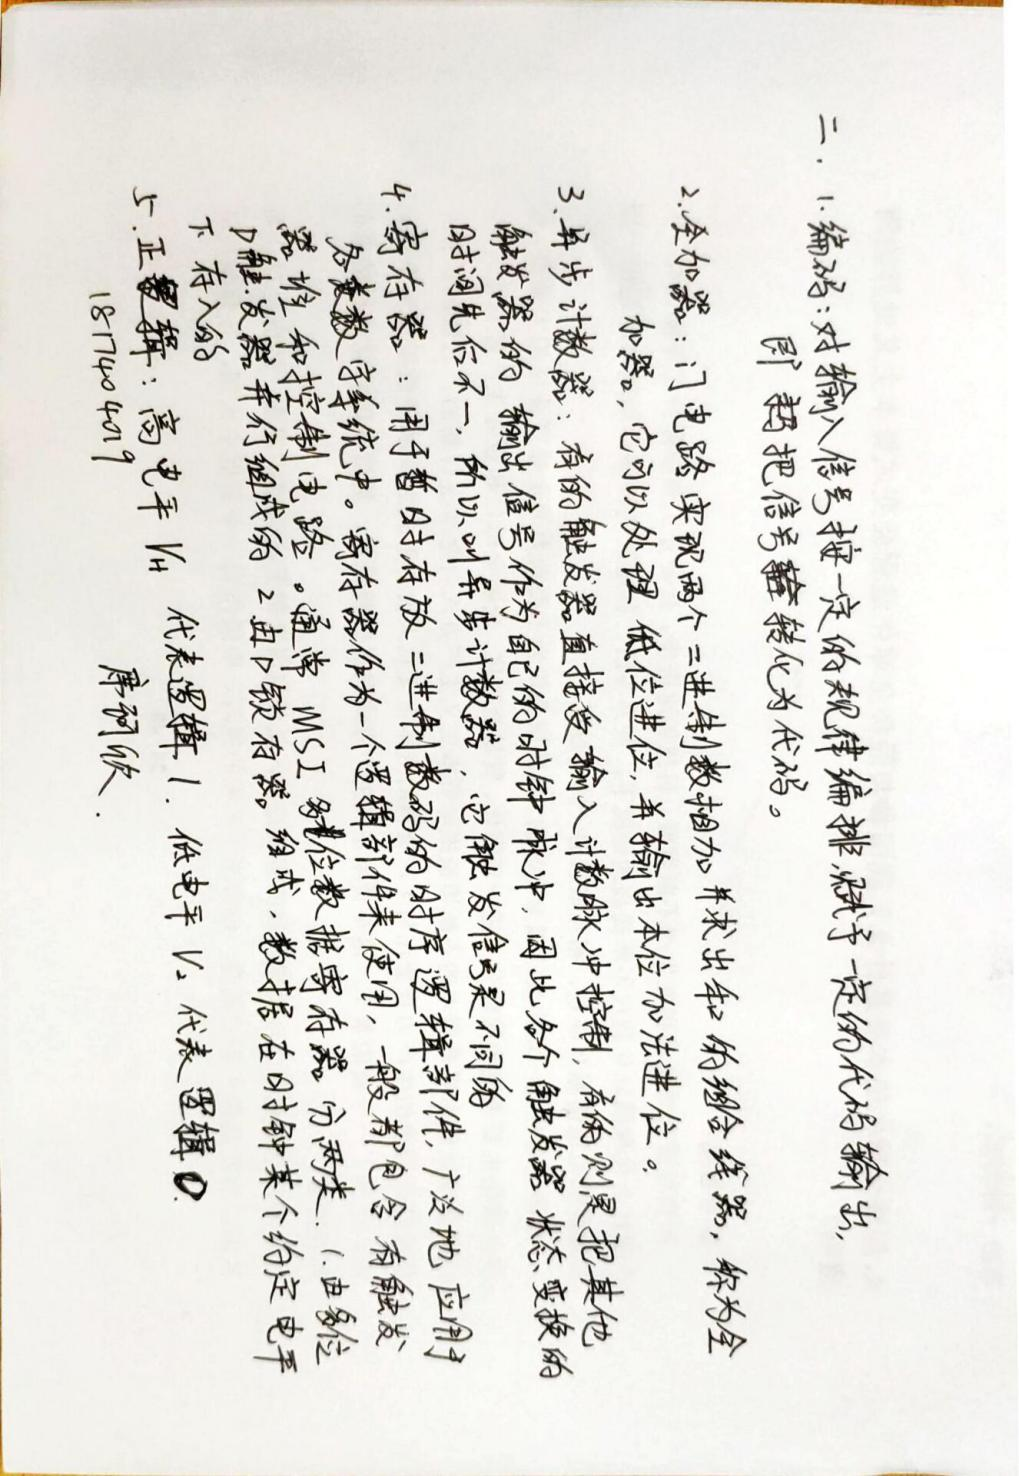 二. 1. 编码：对输入信号按一定的规律编排，赋予一定的代码输出，
即把信号转化为代码。
2. 全加器：门电路实现两个二进制数相加并求出和的组合线器，称为全
加器，它可以处理低位进位，并输出本位加法进位。
3. 异步计数器：有的触发器直接受输入计数脉冲控制，有的则是把其他
触发器的输出信号作为自己的时钟脉冲，因此各个触发器状态变换的
时间先后不一，所以叫异步计数器，它触发信号是不同的
4. 寄存器：用于暂时存放二进制数码的时序逻辑部件，广泛地应用于
各类数字系统中。寄存器作为一个逻辑部件来使用，一般都包含有触发
器堆和控制电路。通常MSI多位数据寄存器分两类. 1.由多位
D触发器并行组成的 2由D锁存器。组成，数据在时钟某个约定电平
下存入的
5. 正逻辑：高电平 VH 代表逻辑 1. 低电平 VL 代表逻辑 0.
1817404019 欣.